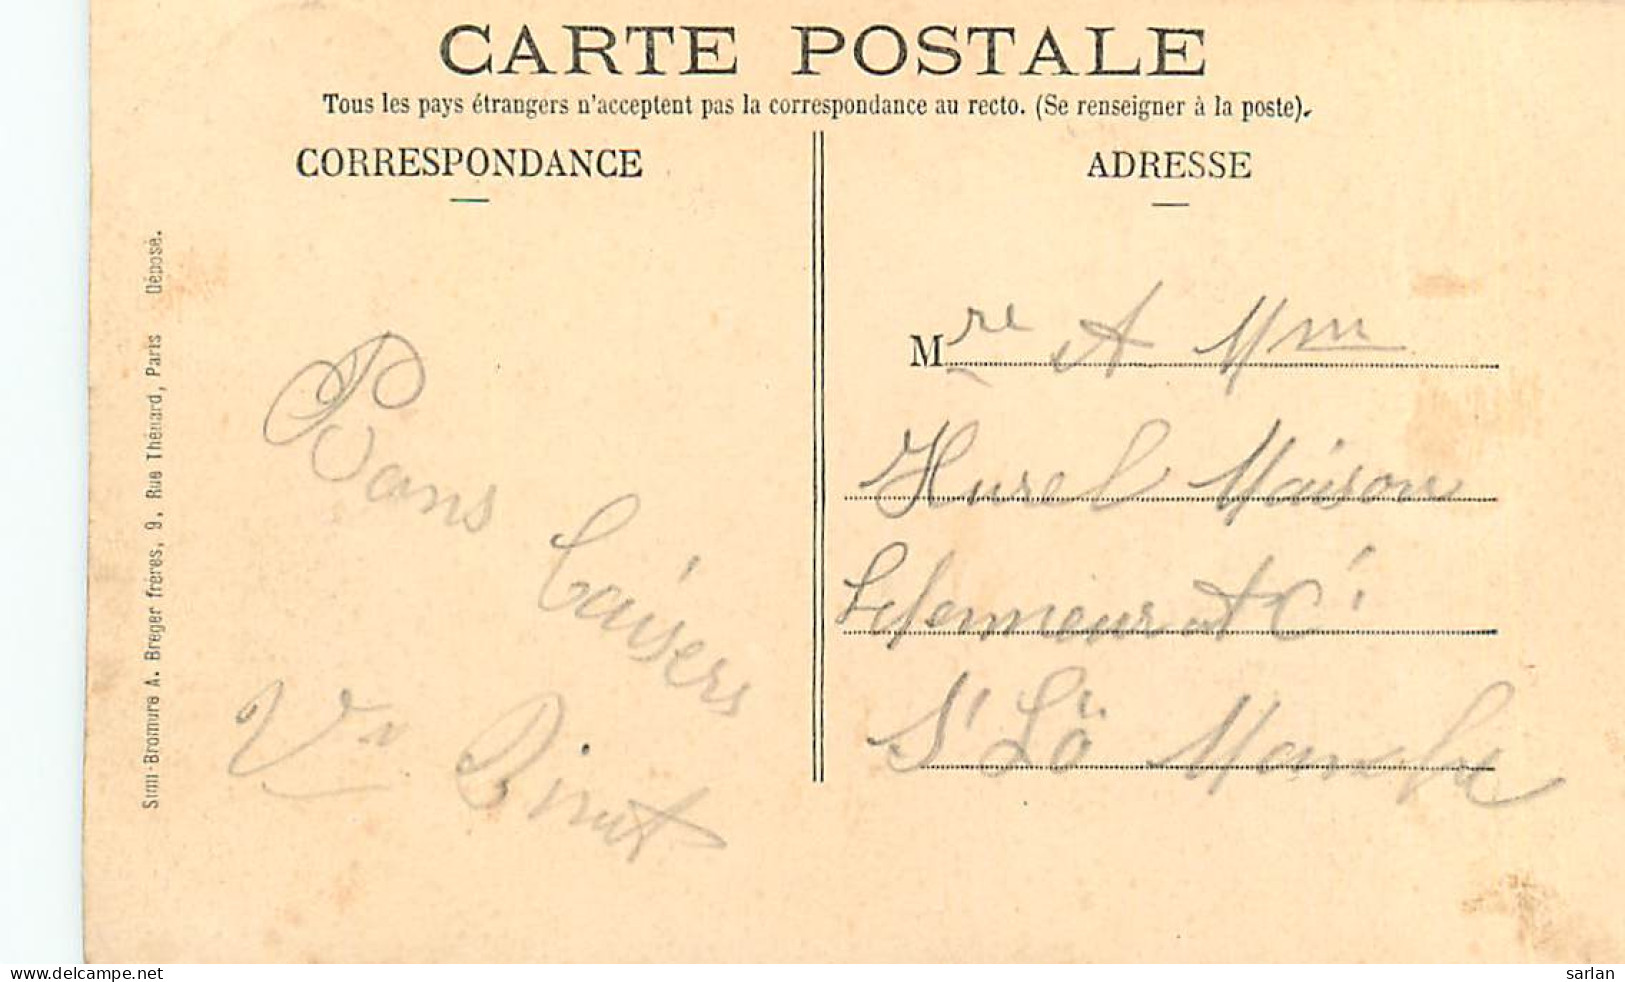 CARTE POSTALE
Tous les pays étrangers n'acceptent pas la correspondance au recto. (Se renseigner à la poste).
CORRESPONDANCE
ADRESSE
Simili-Bromure A. Breger frères, 9, Rue Thénard, Paris Déposé.
Bons baisers
Vve
Mre
Hurel Maison
et Ci
St Lô Manche
delcampe.net
sarlan